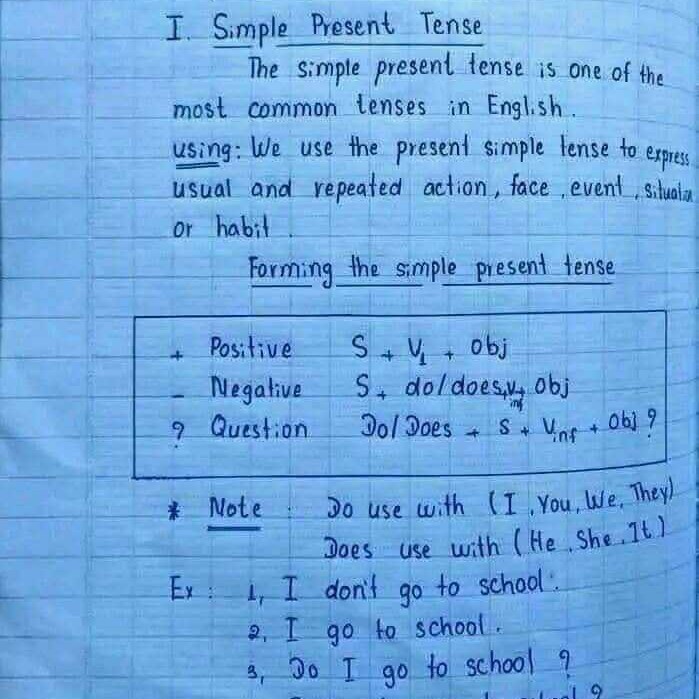 I. Simple Present Tense
The simple present tense is one of the
most common tenses in English.
using: We use the present simple tense to express
usual and repeated action, face, event, situation
or habit.
Forming the simple present tense
+ Positive S + V1 + obj
- Negative S + do/does + Vinf + obj
? Question Do/Does + S + Vinf + Obj ?
* Note : Do use with (I, You, We, They)
Does use with (He, She, It)
Ex : 1, I don't go to school.
2, I go to school.
3, Do I go to school ?